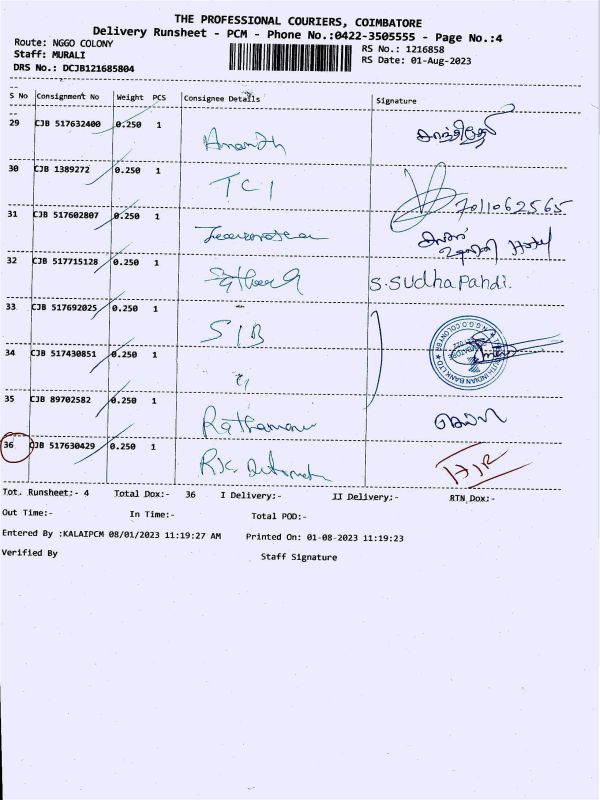 THE PROFESSIONAL COURIERS, COIMBATORE
Delivery Runsheet - PCM - Phone No.:0422-3505555 - Page No.:4
Route: NGGO COLONY
RS No.: 1216858
Staff: MURALI
RS Date: 01-Aug-2023
DRS No.: DCJB121685804
S No Consignment No Weight PCS Consignee Details Signature
29 CJB 517632400 0.250 1 Ananth
30 CJB 1389272 0.250 1 TCI 7011062565
31 CJB 517602807 0.250 1 Hotel
32 CJB 517715128 0.250 1 S.Sudha Pandi.
33 CJB 517692025 0.250 1 SIB
34 CJB 517430851 0.250 1
35 CJB 89702582 0.250 1
36 CJB 517630429 0.250 1 RK
Tot. Runsheet:- 4 Total Dox:- 36 I Delivery:- II Delivery:- RTN Dox:-
Out Time:- In Time:- Total POD:-
Entered By :KALAIPCM 08/01/2023 11:19:27 AM Printed On: 01-08-2023 11:19:23
Verified By Staff Signature